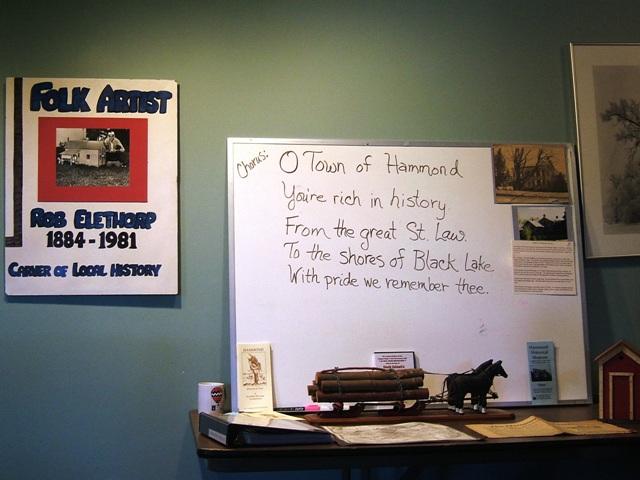 FOLK ARTIST
ROB ELETHORP
1884 - 1981
CARVER OF LOCAL HISTORY
Chorus:
O Town of Hammond
You're rich in history
From the great St. Law.
To the shores of Black Lake
With pride we remember thee.
HAMMOND